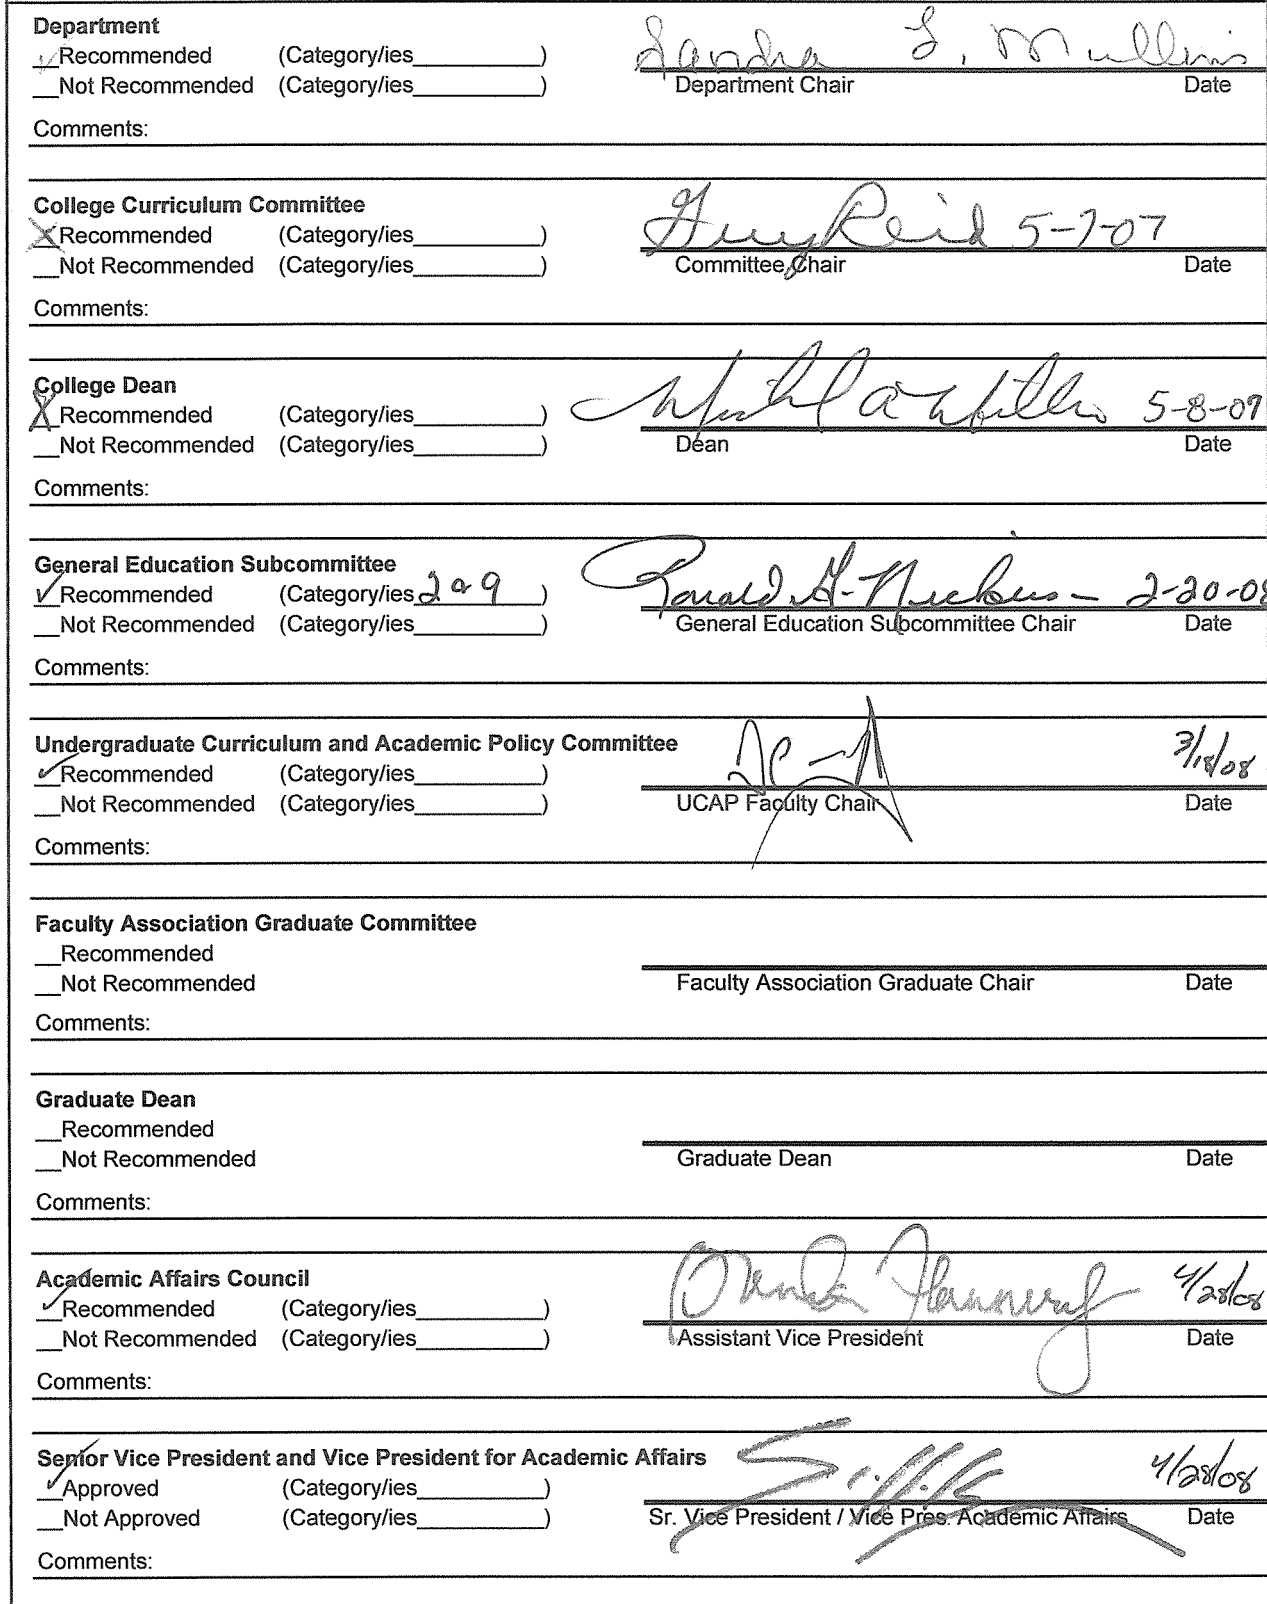 Department
Recommended (Category/ies__________) Sandra L. Mullins
__Not Recommended (Category/ies__________) Department Chair Date
Comments:
College Curriculum Committee
X Recommended (Category/ies__________) Guy Reid 5-7-07
__Not Recommended (Category/ies__________) Committee Chair Date
Comments:
College Dean
X Recommended (Category/ies__________) 5-8-07
__Not Recommended (Category/ies__________) Dean Date
Comments:
General Education Subcommittee
✓ Recommended (Category/ies 2 or 9) Ronald 2-20-08
__Not Recommended (Category/ies__________) General Education Subcommittee Chair Date
Comments:
Undergraduate Curriculum and Academic Policy Committee
✓ Recommended (Category/ies__________) 3/18/08
__Not Recommended (Category/ies__________) UCAP Faculty Chair Date
Comments:
Faculty Association Graduate Committee
__Recommended
__Not Recommended Faculty Association Graduate Chair Date
Comments:
Graduate Dean
__Recommended
__Not Recommended Graduate Dean Date
Comments:
Academic Affairs Council
✓ Recommended (Category/ies__________) 4/28/08
__Not Recommended (Category/ies__________) Assistant Vice President Date
Comments:
Senior Vice President and Vice President for Academic Affairs
✓ Approved (Category/ies__________) 4/28/08
__Not Approved (Category/ies__________) Sr. Vice President / Vice Pres. Academic Affairs Date
Comments: